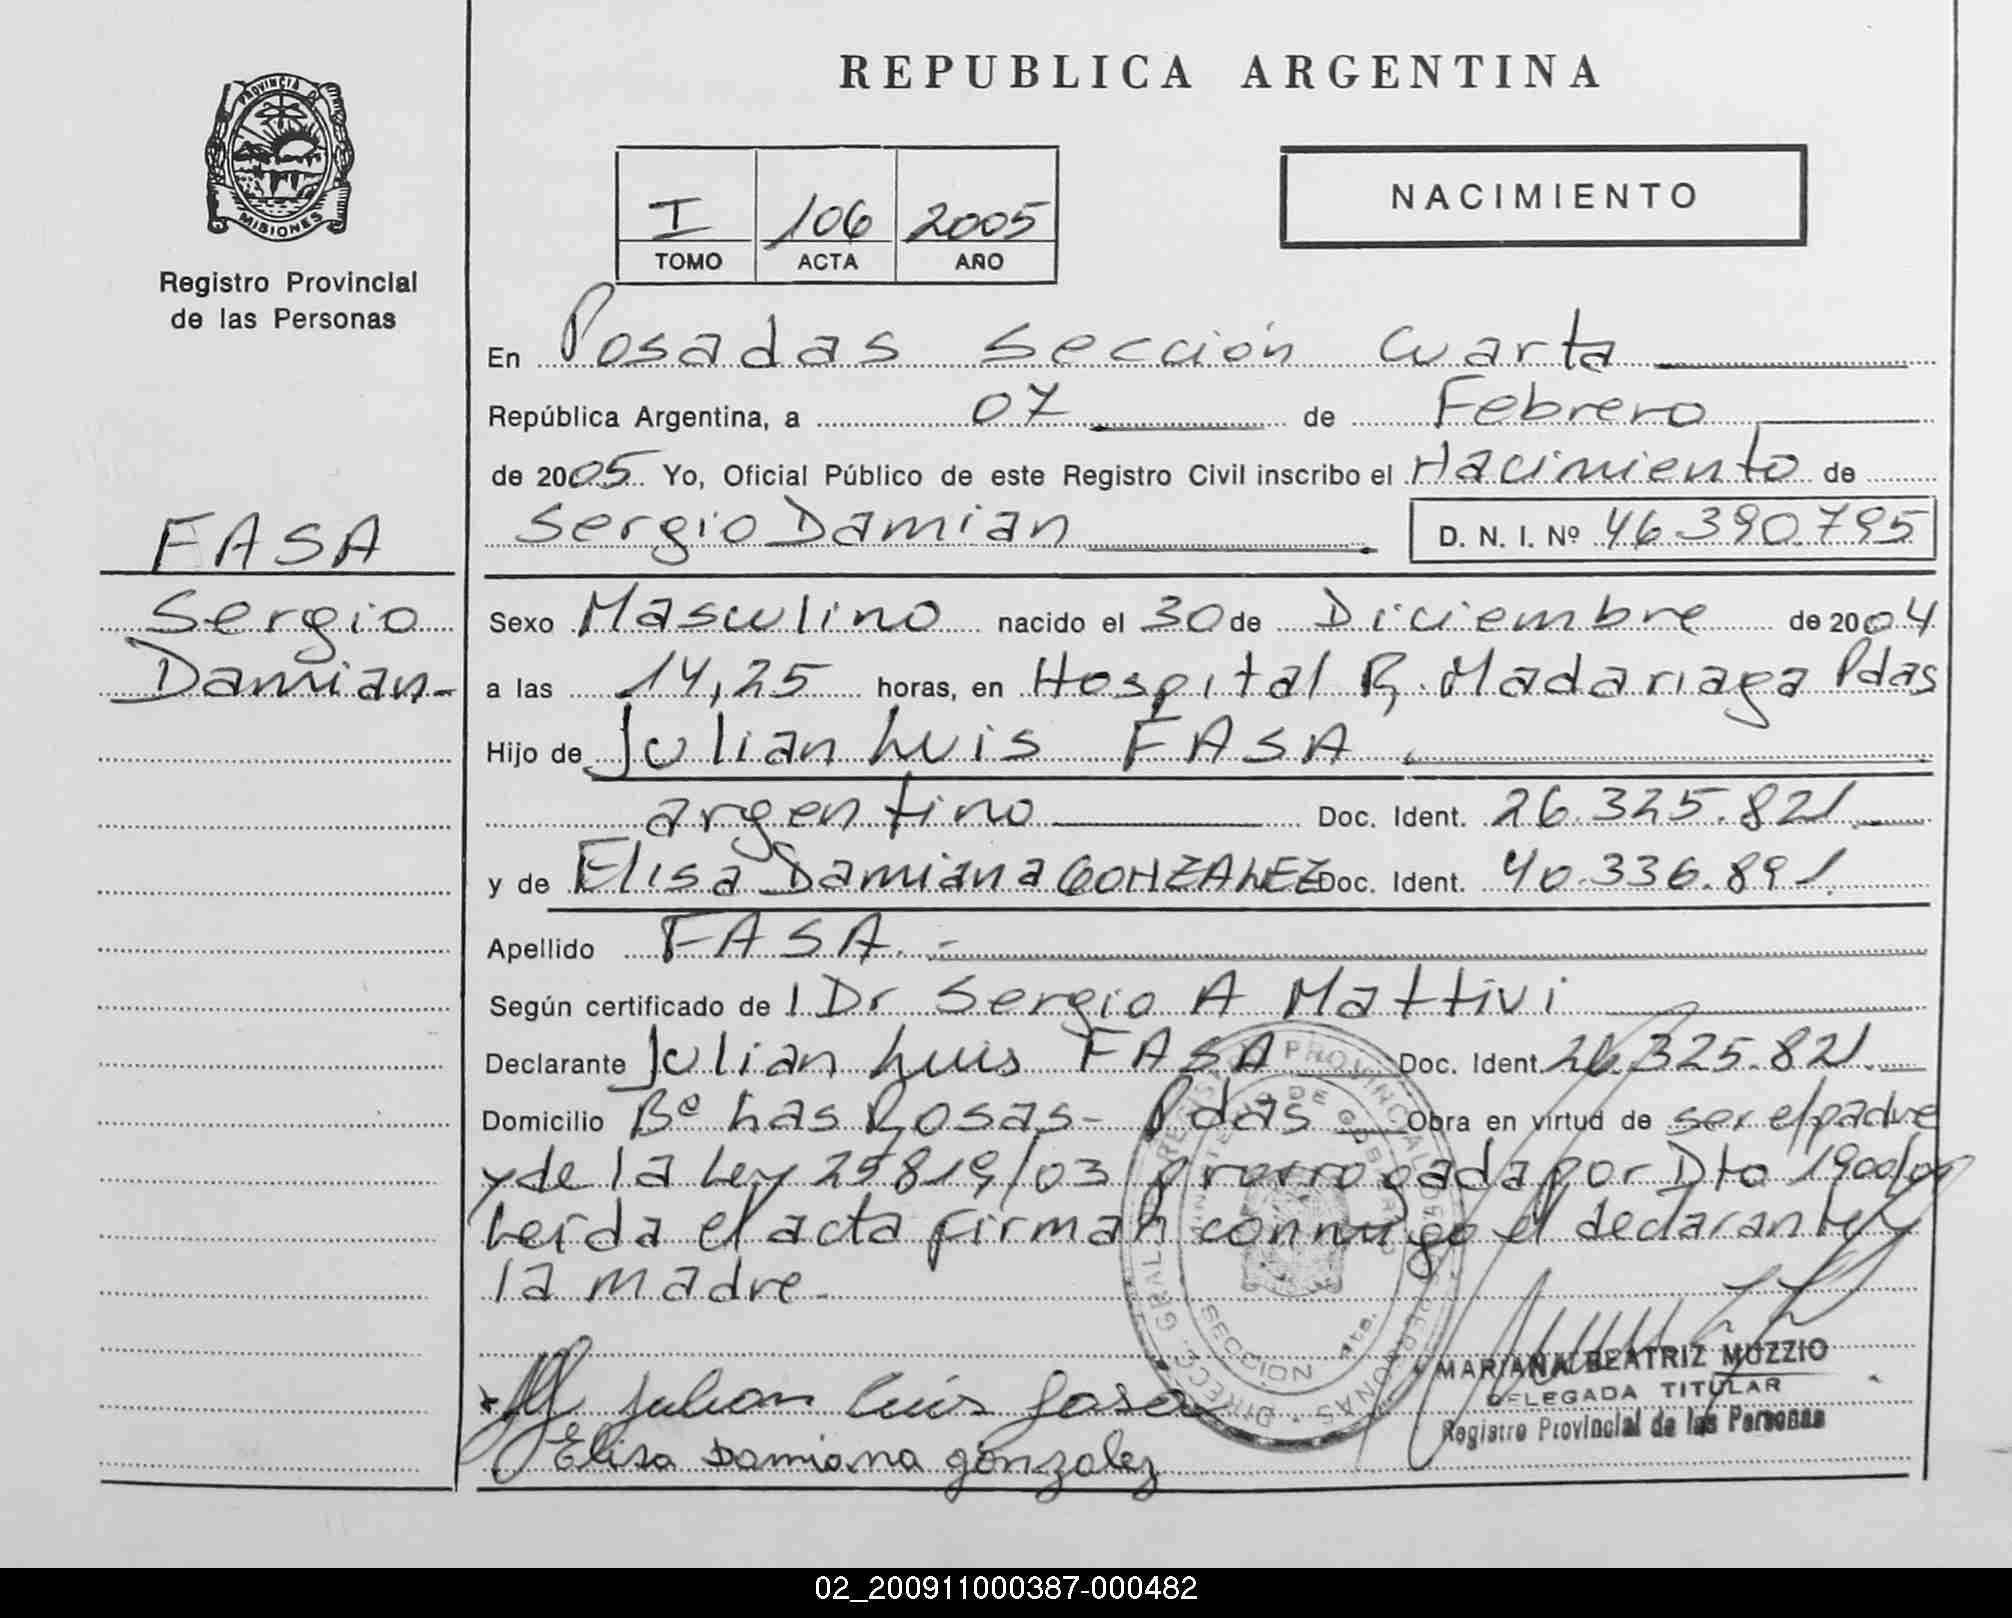 REPUBLICA ARGENTINA
PROVINCIA DE
MISIONES
Registro Provincial
de las Personas
I 106 2005
TOMO ACTA AÑO
NACIMIENTO
FASA
Sergio
Damian.-
En Posadas Sección Cuarta
República Argentina, a 07 de Febrero
de 2005 Yo, Oficial Público de este Registro Civil inscribo el Nacimiento de
Sergio Damian D. N. I. Nº 46.390.795
Sexo Masculino nacido el 30 de Diciembre de 2004
a las 14,25 horas, en Hospital R. Madariaga Pdas
Hijo de Julian Luis FASA
argentino Doc. Ident. 26.325.821.
y de Elisa Damiana GONZALEZ Doc. Ident. 40.336.891.
Apellido FASA.-
Según certificado de Dr Sergio A Mattivi
Declarante Julian Luis FASA Doc. Ident. 26.325.821.
Domicilio Bº Las Rosas - Pdas Obra en virtud de ser el padre
y de la Ley 25819/03 prorrogada por Dto 1900/04
Leída el acta firman conmigo el declarante y
la madre.
Julian Luis fasa
Elisa Damiana gonzalez
DIRECC. GRAL. PROVINCIAL DE PERSONAS
MINISTERIO DE GOBIERNO
SECCION 4ta.
MARIANA BEATRIZ MUZZIO
DELEGADA TITULAR
Registro Provincial de las Personas
02_200911000387-000482